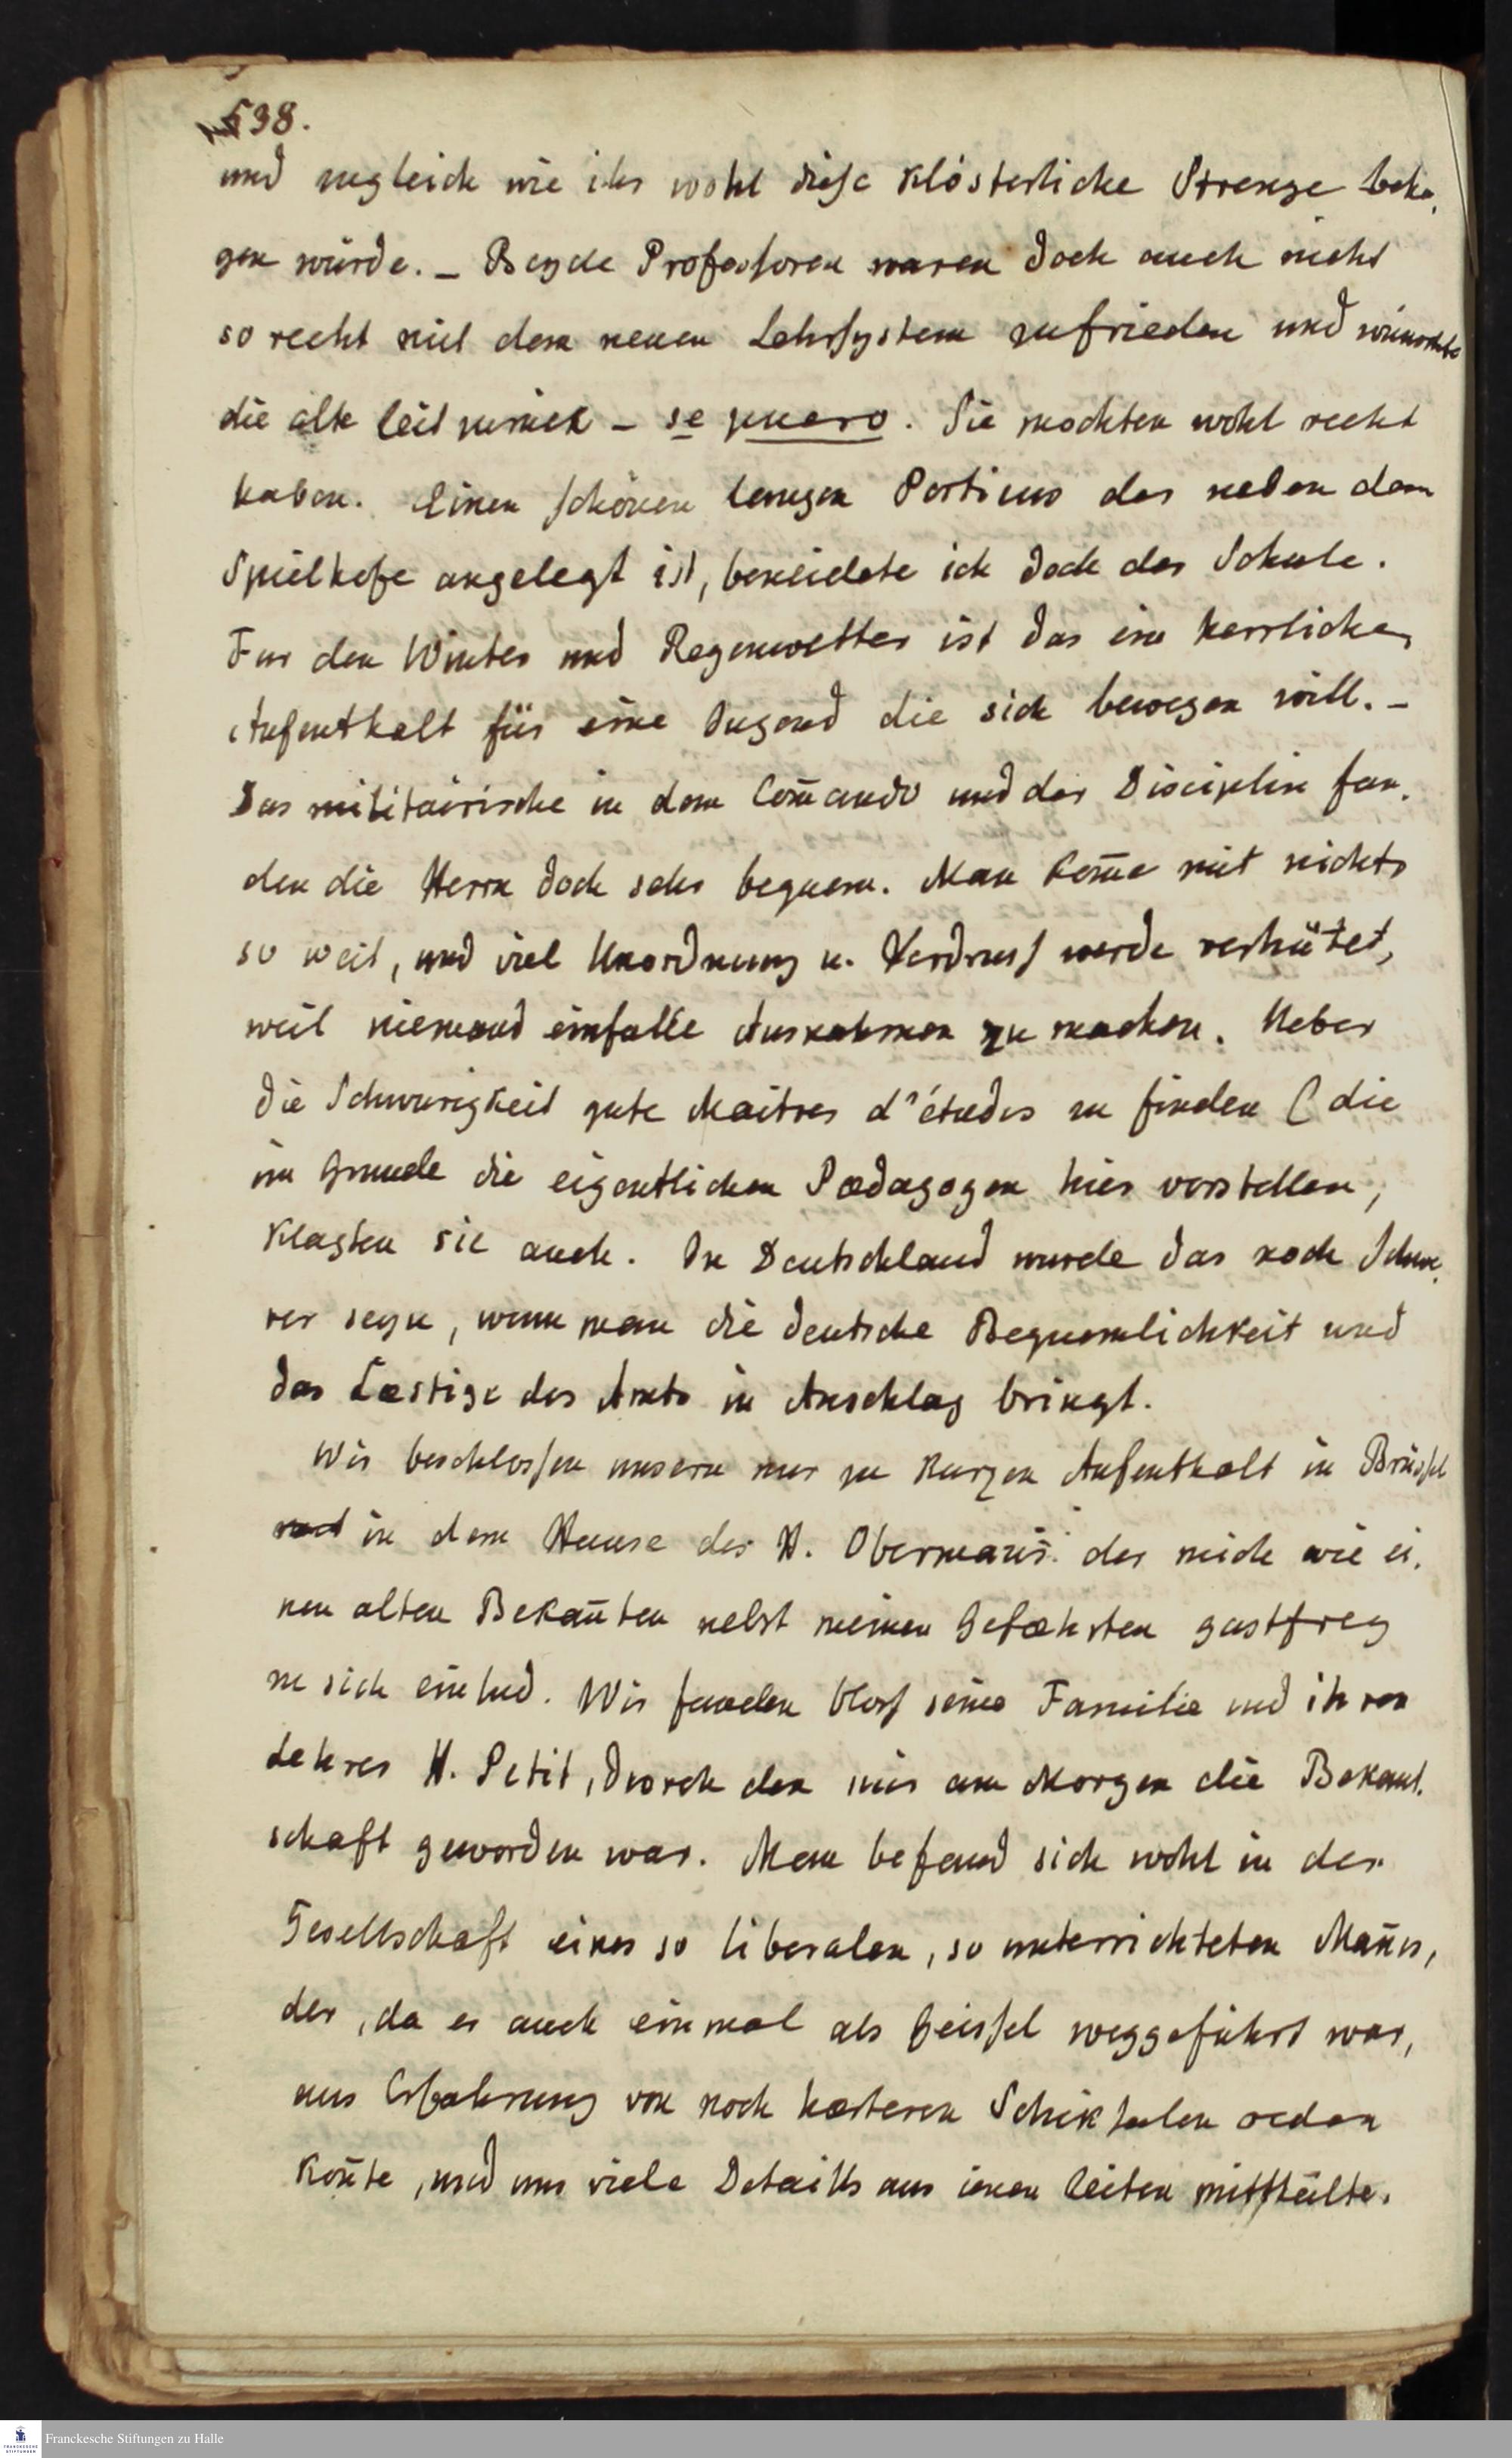 538.
und zugleich wie ihr wohl diese Klösterliche Strenge beha-
gen würde. – Beyde Professoren waren doch auch nicht
so recht mit dem neuen Lehrsystem zufrieden und wünschte
die alte Zeit zurück – se puero. Sie mochten wohl recht
haben. Einen schönen langen Porticus der neben dem
Spielhofe angelegt ist, beneidete ich doch der Schule.
Fur den Winter und Regenwetter ist das ein herrlicher
Aufenthalt für eine Jugend die sich bewegen will. –
Das militairische in dem Com̄ando und der Disciplin fan-
den die Herrn doch sehr bequem. Man kom̄e mit nichts
so weit, und viel Unordnung u. Verdruss werde verhütet,
weil niemand einfalle Ausnahmen zu machen. Ueber
die Schwurigkeit gute Maitres d'études zu finden (die
im Grunde die eigentlichen Pædagogen hier vorstellen,
klagten sie auch. In Deutschland wurde das noch Schwe-
rer seyn, wenn man die deutsche Bequemlichkeit und
das Læstige des Amts in Anschlag bringt.
Wir beschlossen unsern nur zu kurzen Aufenthalt in Brüssel
in dem Hause des H. Obermaris. der mich wie ei-
nen alten Bekan̄ten nebst meinen Gefæhrten gastfrey
zu sich einlud. Wir fanden bloss seine Familie und ihren
Lehrer H. Petit, durch den mir am Morgen die Bekant-
schaft geworden war. Man befand sich wohl in der
Gesellschaft eines so liberalen, so unterrichteten Man̄es,
der, da er auch einmal als Geissel weggeführt war,
aus Erfahrung von noch hærteren Schiksalen reden
kon̄te, und uns viele Details aus ienen Zeiten mittheilte.
Franckesche Stiftungen zu Halle